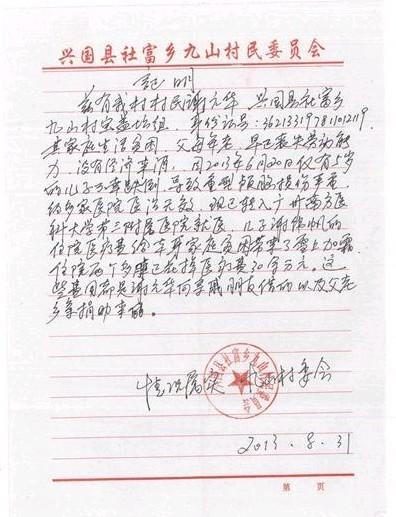 兴国县社富乡九山村民委员会
证明
兹有我村村民谢元华 兴国县社富乡
九山村 组，身份证号：362133197811012119
其家庭生活贫困，父母年老，早已丧失劳动能
力，没有经济来源，因2013年6月20日仅有七岁
的儿子不幸跌倒，导致重型颅脑损伤，
经多家医院医治无效，现已转入广州南方医
科大学第三附属医院就医，儿子谢 帆的
住院医药费给 家庭贫困带来了雪上加霜
住院两个多 已花掉医药费20多万元。这
些费用都是谢元华向亲戚朋友借的以及父老
乡亲捐助来的。
情况属实 九山村委会
兴国县社富乡九山村民委员会
2013.8.31
第 页